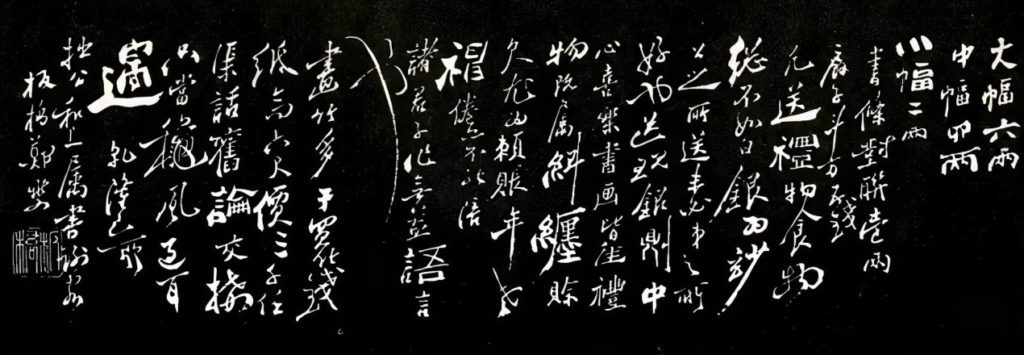 大幅六兩
中幅四兩
小幅二兩
書條對聯壹兩
扇子斗方五錢
凡送禮物食物
總不如白銀為妙
公之所送未必弟之所
好也送現銀則中
心喜樂書画皆佳禮
物既属糾纏賒
欠尤為賴賬年老
神倦亦不能陪
諸君子作無益語言
也
畫竹多于買竹錢
紙高六尺價三千任
渠話舊論交接
只當穐風過耳
邊乾隆己卯
拙公和上属書謝客
板橋鄭燮